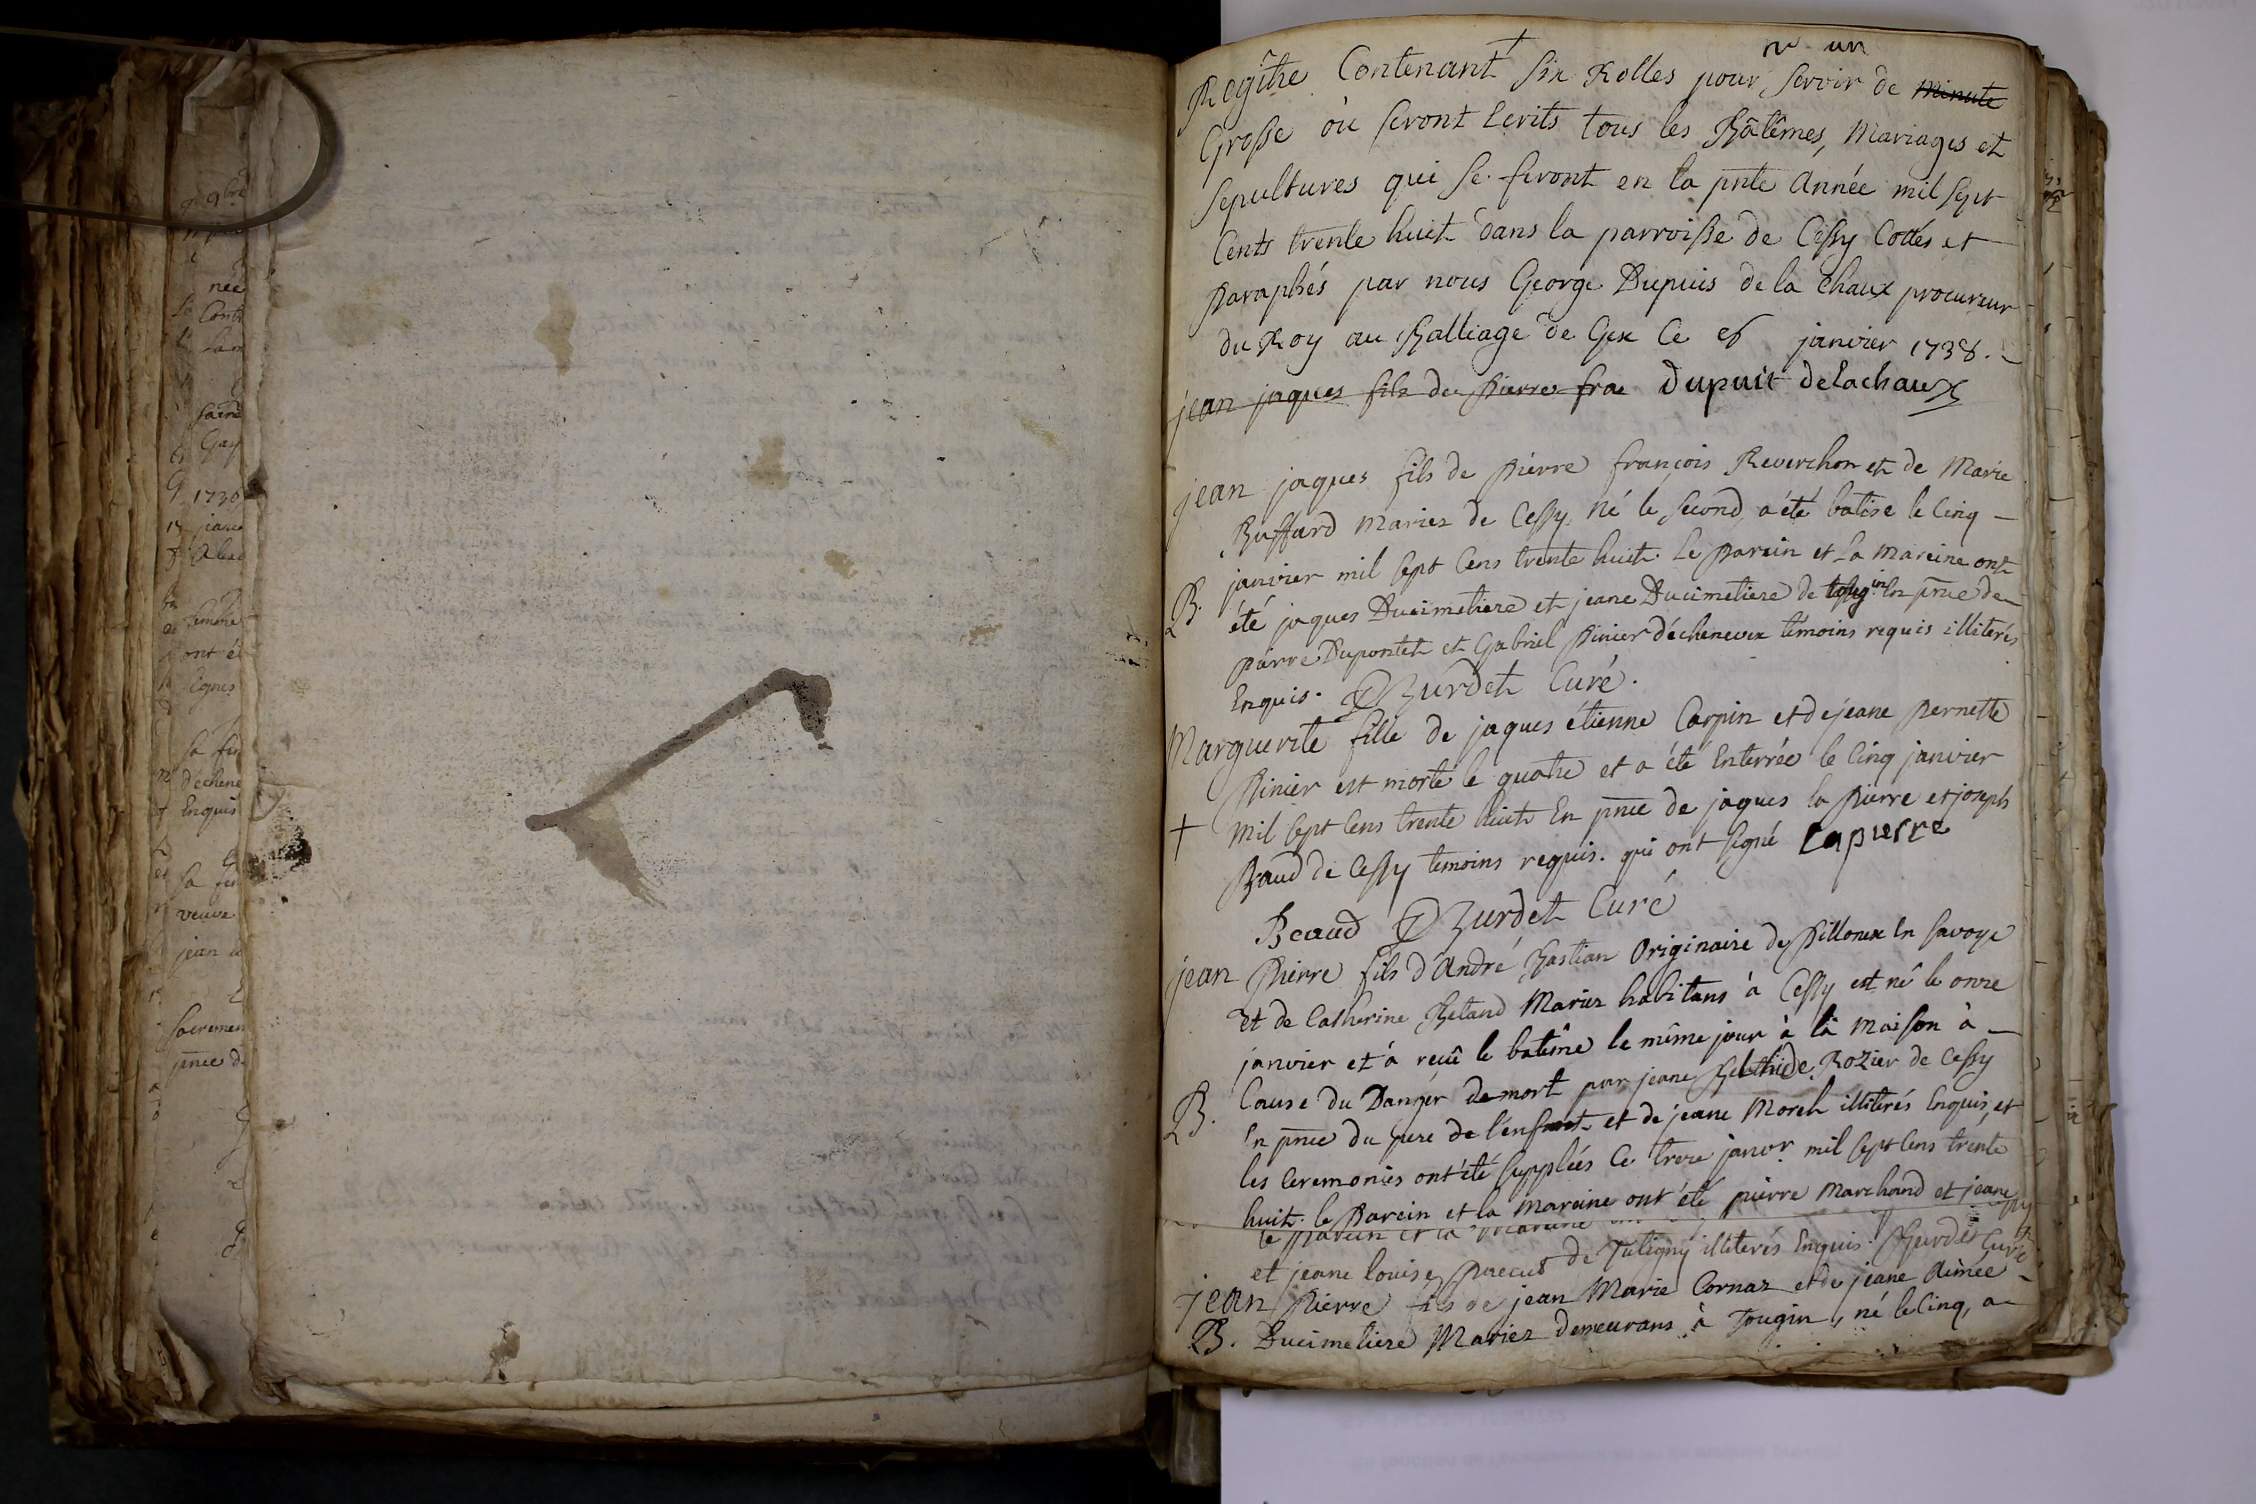 née
Saine
Gay
1736
ont é
sa fi
déchene
Enquis
sa fi
veuve
jean
sacremen
pnce d
nº un
Regître Contenant six Rolles pour servir de Minute
Grosse où seront Ecrits tous les Bâtêmes, Mariages et
Sepultures qui se feront en la pnte Année mil sept
Cents trente huit dans la parroisse de Cessy Cottés et
Paraphés par nous George Dupuis de la Chaux procureur
du Roy au Balliage de Gex Ce 6 janvier 1738.
jean jaques fils de Pierre fra Dupuit delachaux
jean jaques fils de Pierre françois Reverchon et de Marie
Buffard Mariez de Cessy, né le second, a été batisé le Cinq
janvier mil sept Cens trente huit. Le Parein et La Mareine ont
B. été jaques Ducimetiere et jeane Ducimetiere de tougin En pnce de
pierre Dupontet et Gabriel Pinier d'échenevex témoins requis illiterés
Enquis. Burdet Curé.
Marguerite fille de jaques étienne Carpin et de jeane Pernette
Pinier est morte le quatre et a été Enterrée le Cinq janvier
+ mil sept Cens trente huit En pnce de jaques la Pierre et joseph
Baud de Cessy temoins requis. qui ont signé Lapierre
Beaud Burdet Curé
jean Pierre fils d'André Bastian Originaire de Pillonex En Savoye
et de Catherine Betand Mariez habitans à Cessy est né le onze
janvier et a reçû le batême le même jour à la maison à
Cause du Danger de mort par jeane Rozier de Cessy
B. En pnce du pere de l'enfant et de jeane Morel illiterés Enquis, et
les Ceremonies ont été supplées Ce treze janvr mil sept Cens trente
huit. le Parein et la Mareine ont été pierre Marchand et jeane
le Parein et la Mareine
et jeane louise de Tutigny illiterés Enquis. Burdet Curé
jean Pierre fils de jean Marie Cornaz et de jeane Aimée
B. Ducimetiere Mariez demeurans à Tougin, né le Cinq, a